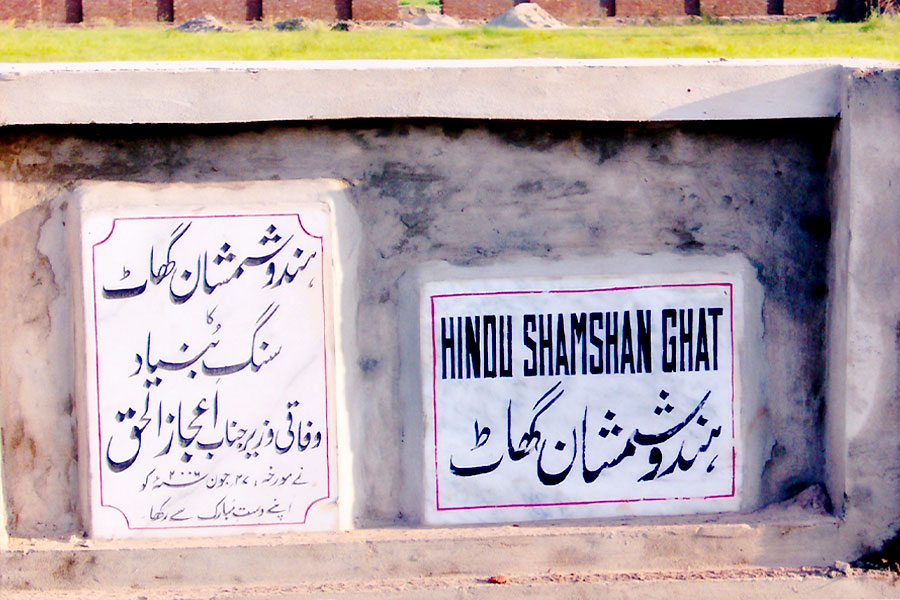 ہندو شمشان گھاٹ
کا
سنگِ بُنیاد
وفاقی وزیر جناب اعجاز الحق
نے مورخہ ۲۷ جون ۲۰۰۶ کو
اپنے دست مُبارک سے رکھا
HINDU SHAMSHAN GHAT
ہندو شمشان گھاٹ